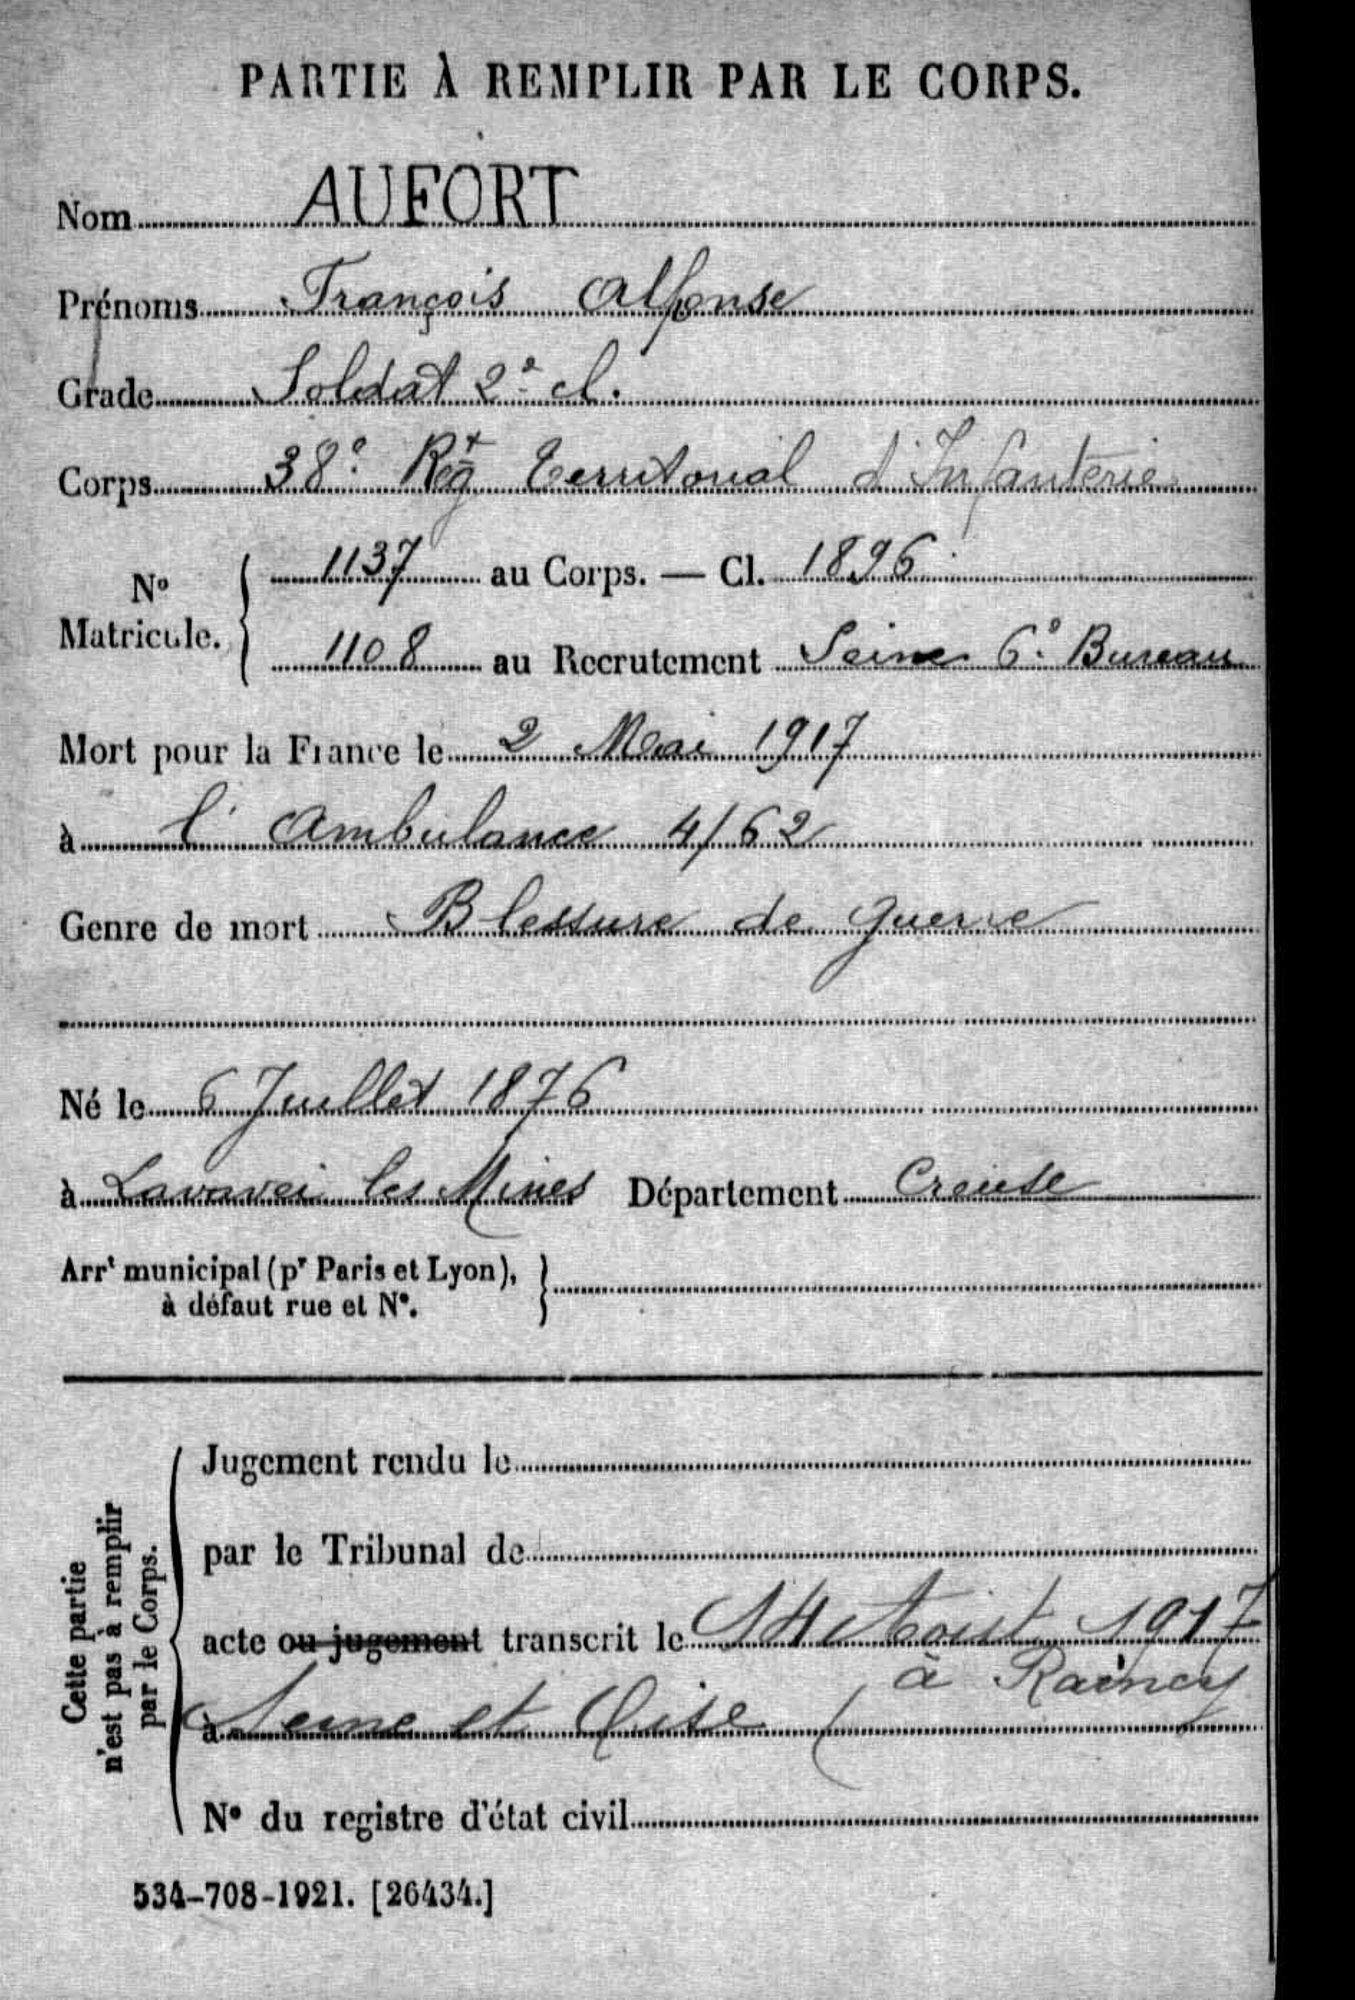 PARTIE À REMPLIR PAR LE CORPS.
Nom AUFORT
Prénoms François Alfonse
Grade Soldat 2e cl.
Corps 38e Régt Territorial d'Infanterie
No Matricule. { 1137 au Corps. — Cl. 1896
1108 au Recrutement Seine 6e Bureau
Mort pour la France le 2 Mai 1917
à l'Ambulance 4/62
Genre de mort Blessure de guerre
Né le 6 Juillet 1876
à Lavavei les Mines Département Creuse
Arrt municipal (pr Paris et Lyon),
à défaut rue et No.
Cette partie
n'est pas à remplir
par le Corps.
Jugement rendu le
par le Tribunal de
acte ou jugement transcrit le 14 Aout 1917
à Raincy
à Seine et Oise
No du registre d'état civil
534-708-1921. [26434.]